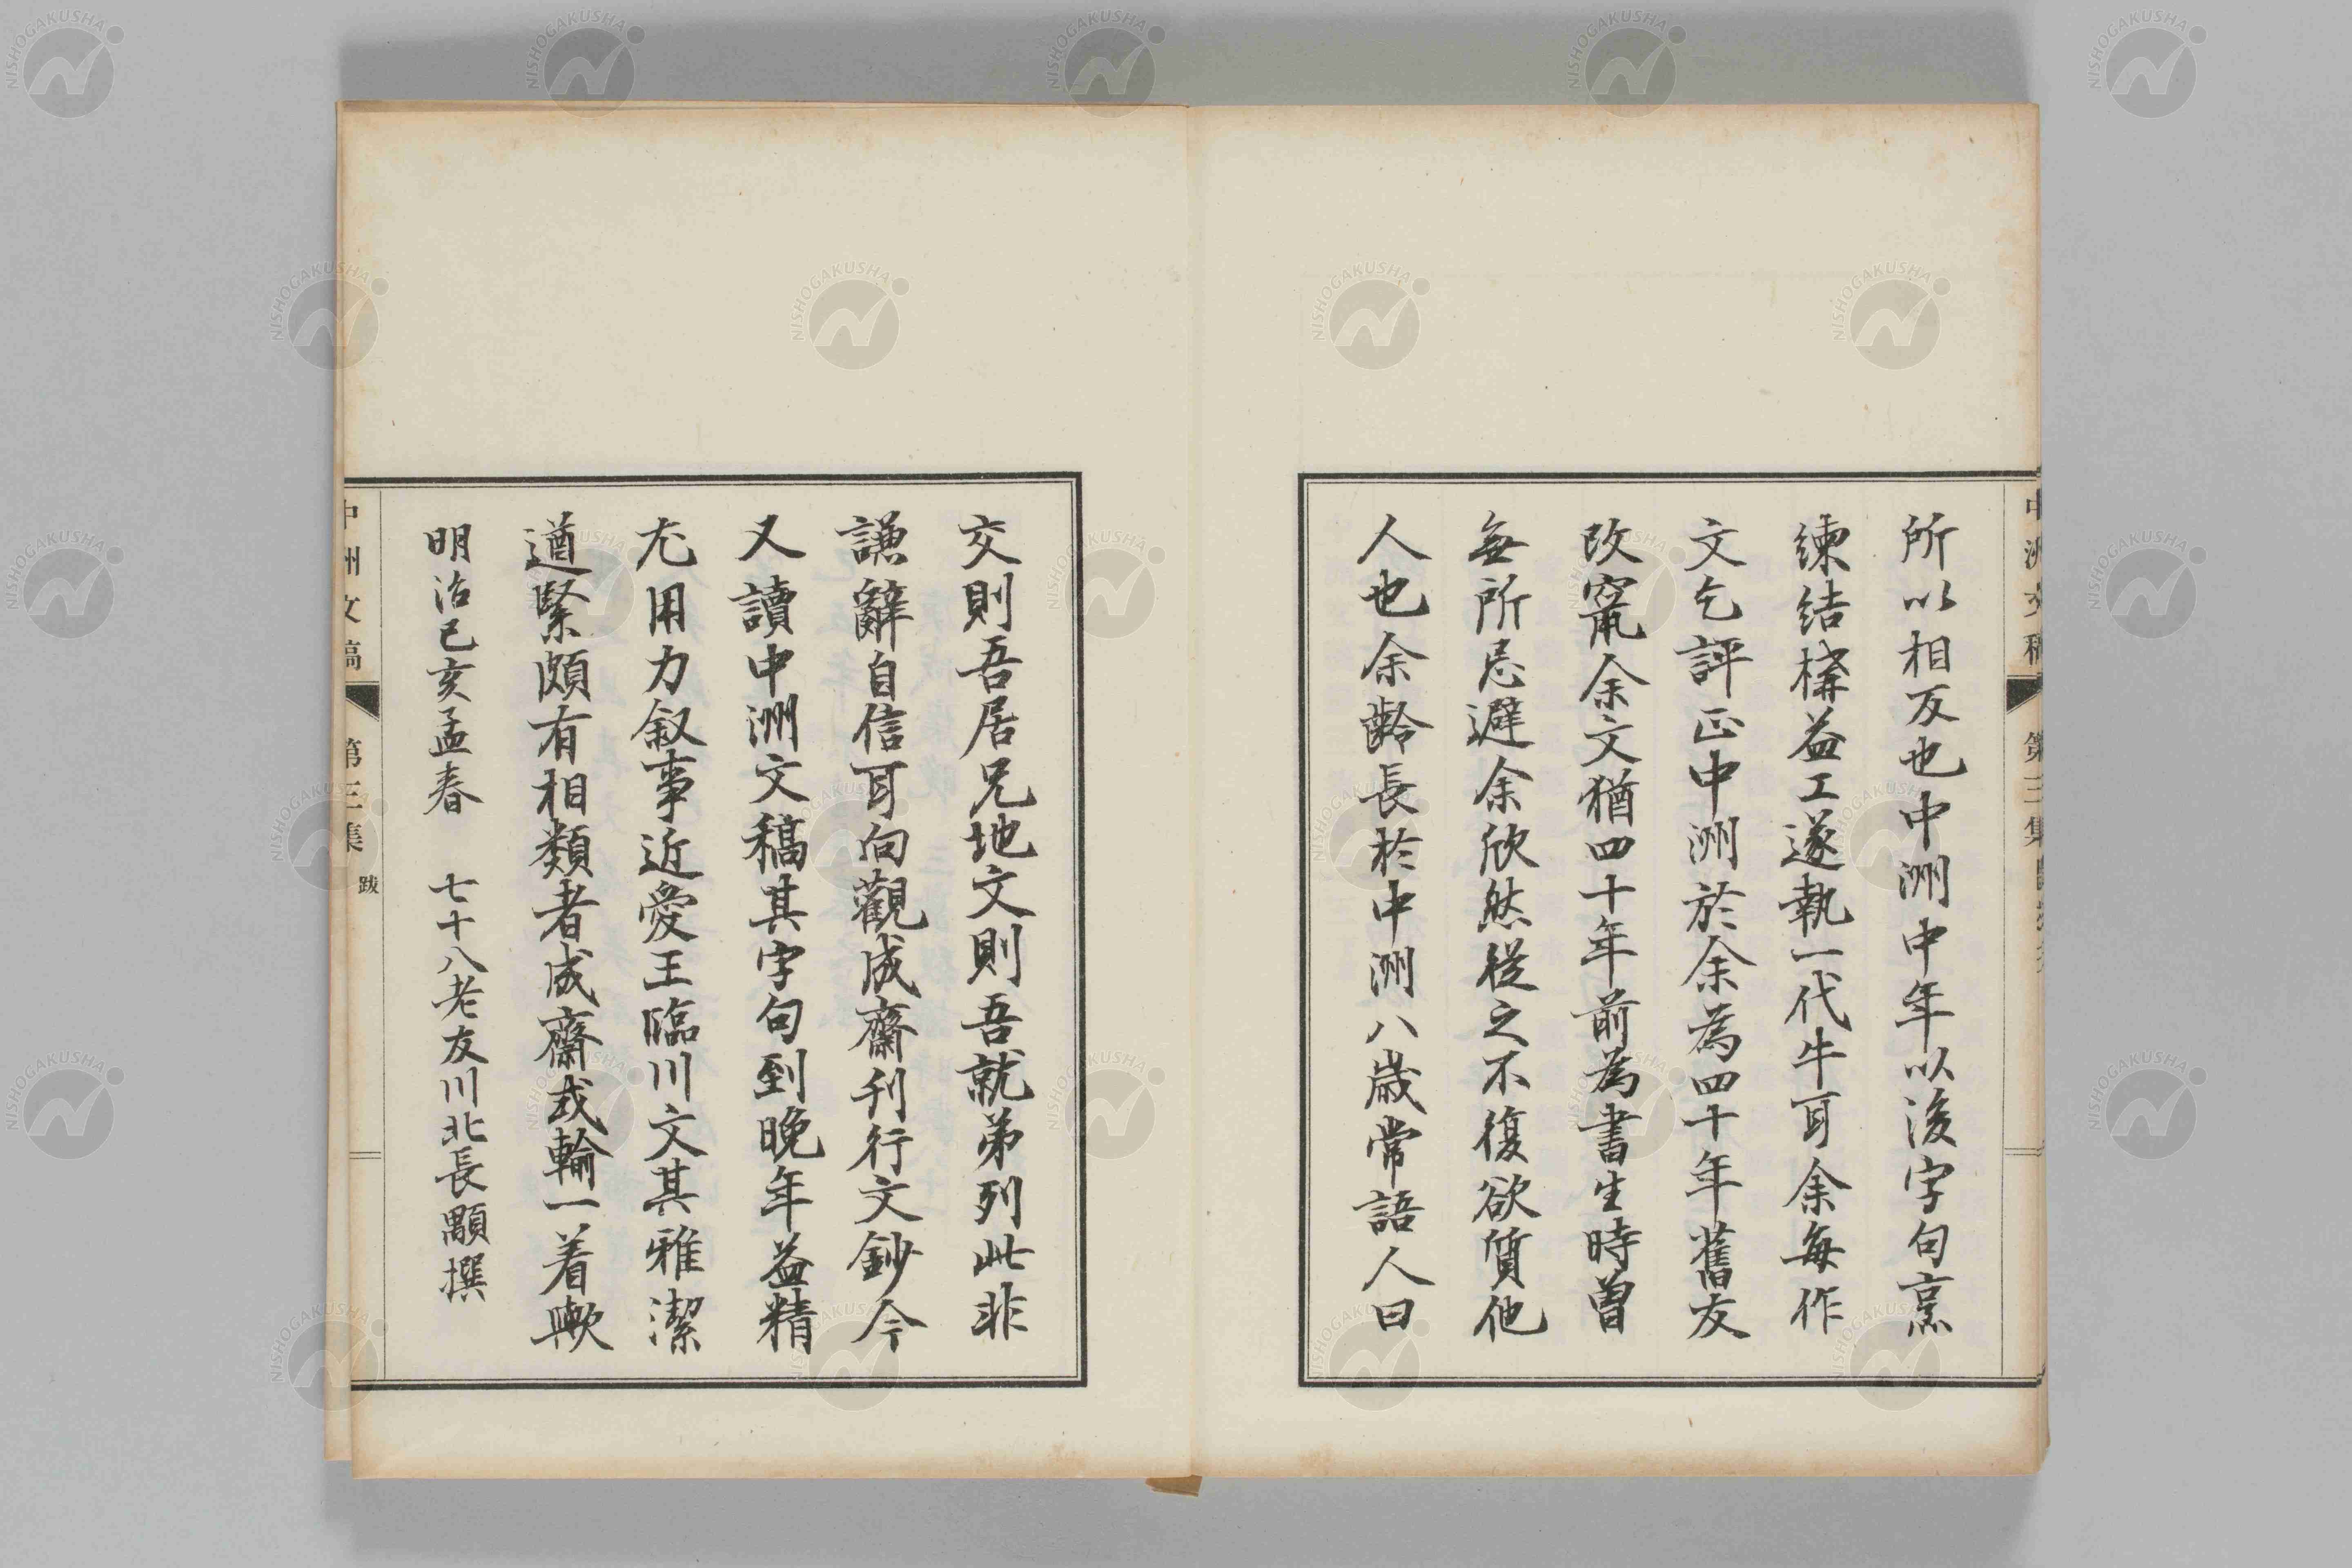 所以相反也中洲中年以後字句烹
練結構益工遂執一代牛耳余每作
文乞評正中洲於余為四十年舊友
改竄余文猶四十年前為書生時曽
無所忌避余欣然從之不復欲質他
人也余齡長於中洲八歲常語人曰
交則吾居兄地文則吾就弟列此非
謙辭自信耳向觀成齋刊行文鈔今
又讀中洲文稿其字句到晚年益精
尤用力叙事近愛王臨川文其雅潔
遒緊頗有相類者成齋或輸一着歟
明治己亥孟春 七十八老友川北長顒撰
中洲文稿 第三集 跋
NISHOGAKUSHA